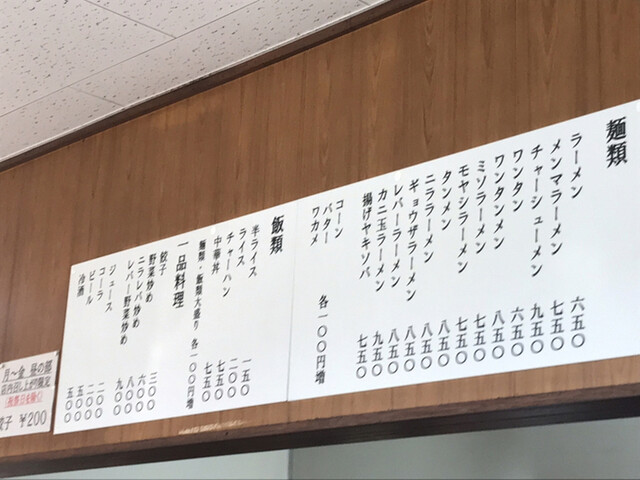 麺類
ラーメン 六五〇
メンマラーメン 七五〇
チャーシューメン 九五〇
ワンタン 六五〇
ワンタンメン 八五〇
ミソラーメン 七五〇
モヤシラーメン 七五〇
タンメン 八五〇
ニララーメン 八五〇
ギョウザラーメン 八五〇
レバーラーメン 八五〇
カニ玉ラーメン 九五〇
揚げヤキソバ 七五〇
コーン
バター 各一〇〇円増
ワカメ
飯類
半ライス 一五〇
ライス 二〇〇
チャーハン 七五〇
中華丼 七五〇
麺類・飯類大盛り 各一〇〇円増
一品料理
餃子 三〇〇
野菜炒め 六〇〇
ニラレバ炒め 八〇〇
レバー野菜炒め 九〇〇
ジュース 二〇〇
コーラ 二〇〇
ビール 五〇〇
冷酒 五〇〇
月～金 昼の部
店内召し上がり限定
(祝祭日を除く)
餃子 ￥200